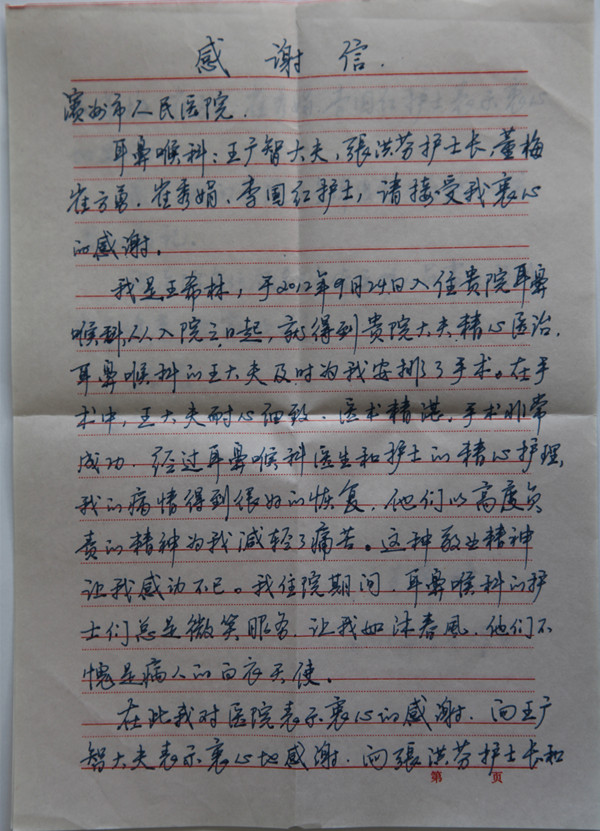 感谢信.
滨州市人民医院.
耳鼻喉科:王广智大夫,張洪芬护士长,董梅
崔方勇、崔秀娟、李国红护士,请接受我衷心
的感谢。
我是王希林,于2012年9月24日入住贵院耳鼻
喉科,从入院之日起,就得到贵院大夫精心医治.
耳鼻喉科的王大夫及时为我安排了手术。在手
术中,王大夫耐心细致.医术精湛,手术非常
成功.经过耳鼻喉科医生和护士的精心护理,
我的病情得到很好的恢复.他们以高度负
责的精神为我減轻了痛苦。这种敬业精神
让我感动不已。我住院期间.耳鼻喉科的护
士们总是微笑服务.让我如沐春風.他们不
愧是病人的白衣天使。
在此我对医院表示衷心的感谢.向王广
智大夫表示衷心地感谢.向張洪芬护士长和
第 页